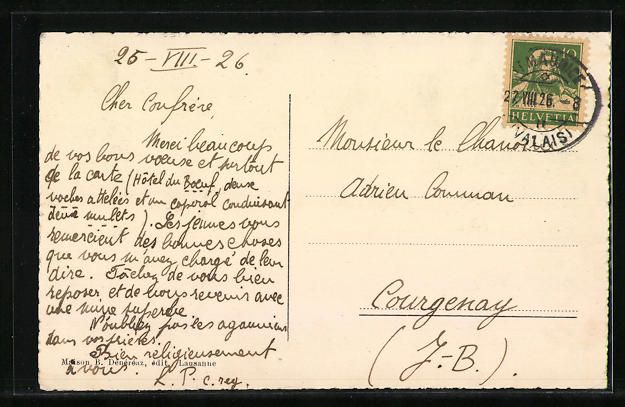 25-VIII-26.
Cher Confrère,
Merci beaucoup
de vos bons vœux et surtout
de la carte (Hôtel du Bœuf, deux
vaches attelées et un caporal conduisant
deux mulets). Les jeunes vous
remercient des bonnes choses
que vous m'avez chargé de leur
dire. Tâchez de vous bien
reposer et de nous revenir avec
une mine superbe.
N'oubliez pas les agauniens
dans vos prières.
Bien religieusement
à vous.
L. P. c. reg.
Maison B. Dénéréaz, édit. Lausanne
10
HELVETIA
ST MAURICE
27.VIII.26.-8
(VALAIS)
Monsieur le Chanoine
Adrien
Courgenay
(J.-B.).